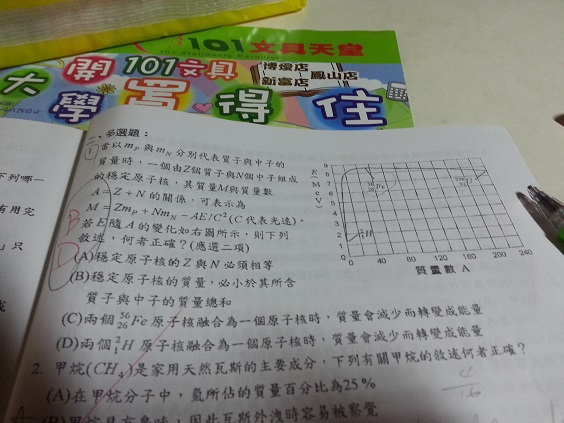 101文具天堂
101文具
博愛店
新富店
鳳山店
大開
學寫得住
下列哪一
有用完
」只
二、多選題：
1. 當以mP與mN分別代表質子與中子的
質量時，一個由Z個質子與N個中子組成
的穩定原子核，其質量M與質量數
A＝Z＋N的關係，可表示為
M＝ZmP＋NmN－AE/C²(C代表光速)。
若E隨A的變化如右圖所示，則下列
敘述，何者正確？(應選二項)
(A)穩定原子核的Z與N必須相等
(B)穩定原子核的質量，必小於其所含
質子與中子的質量總和
(C)兩個⁵⁶₂₆Fe原子核融合為一個原子核時，質量會減少而轉變成能量
(D)兩個²₁H原子核融合為一個原子核時，質量會減少而轉變成能量
2. 甲烷(CH₄)是家用天然瓦斯的主要成分，下列有關甲烷的敘述何者正確？
(A)在甲烷分子中，氫所佔的質量百分比為25%
因此瓦斯外洩時容易被察覺
B
D
E(MeV)
9
8
7
6
5
4
3
2
1
0
⁵⁶₂₆Fe
²₁H
0 40 80 120 160 200 240
質量數 A
4
16